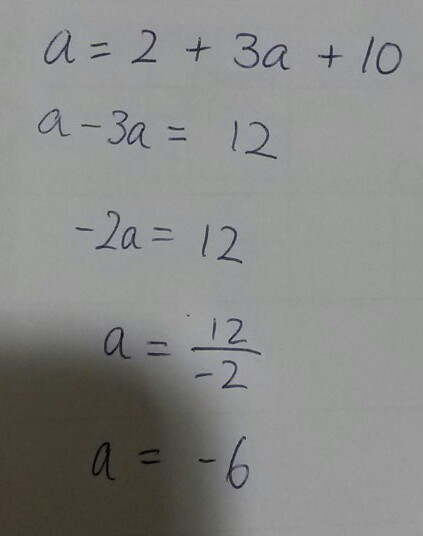 a = 2 + 3a + 10
a - 3a = 12
-2a = 12
a = 12/-2
a = -6